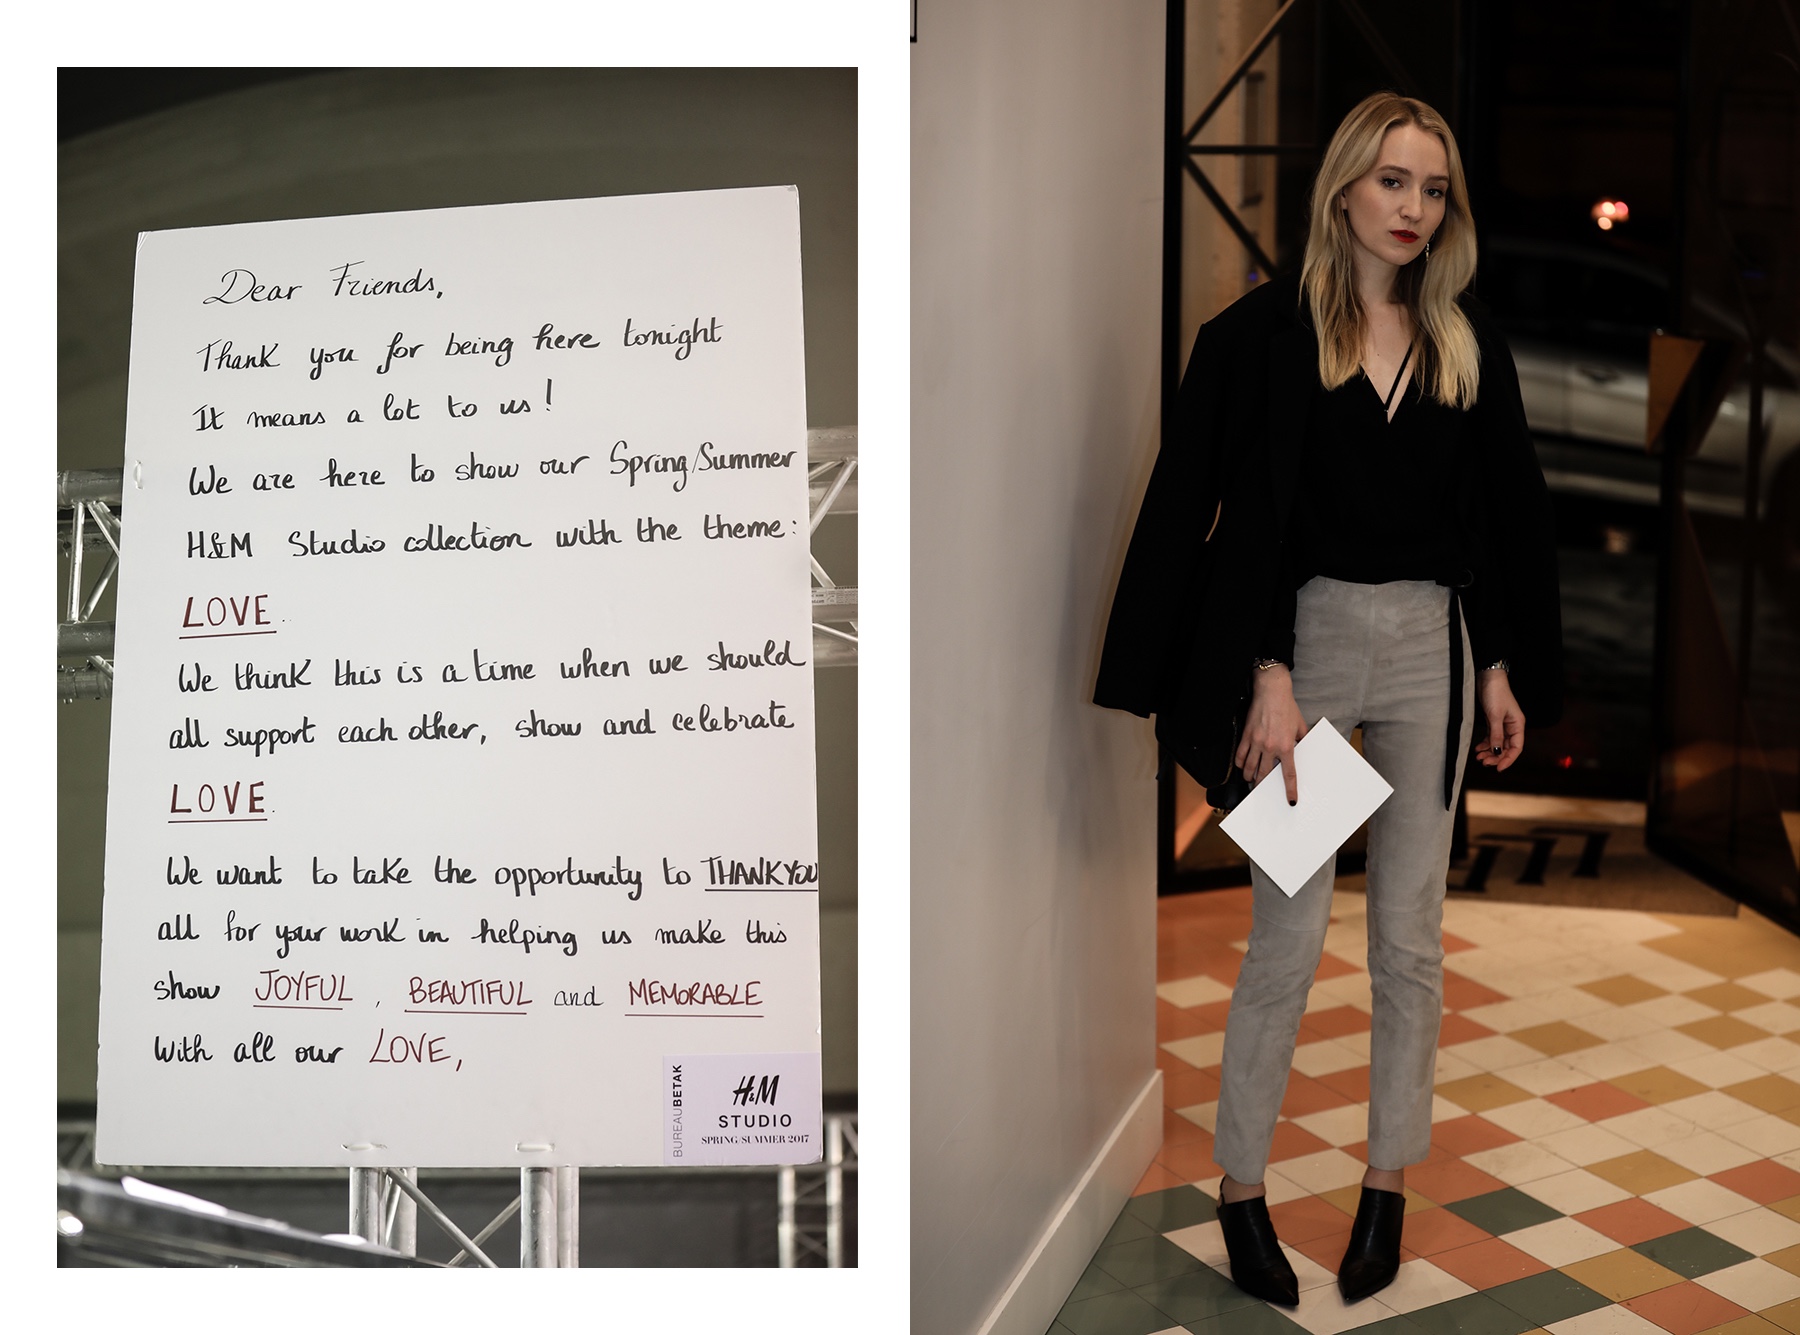 Dear Friends,
Thank you for being here tonight
It means a lot to us!
We are here to show our Spring/Summer
H&M Studio collection with the theme:
LOVE.
We think this is a time when we should
all support each other, show and celebrate
LOVE.
We want to take the opportunity to THANKYOU
all for your work in helping us make this
show JOYFUL, BEAUTIFUL and MEMORABLE
With all our LOVE,
BUREAUBETAK
H&M
STUDIO
SPRING/SUMMER 2017